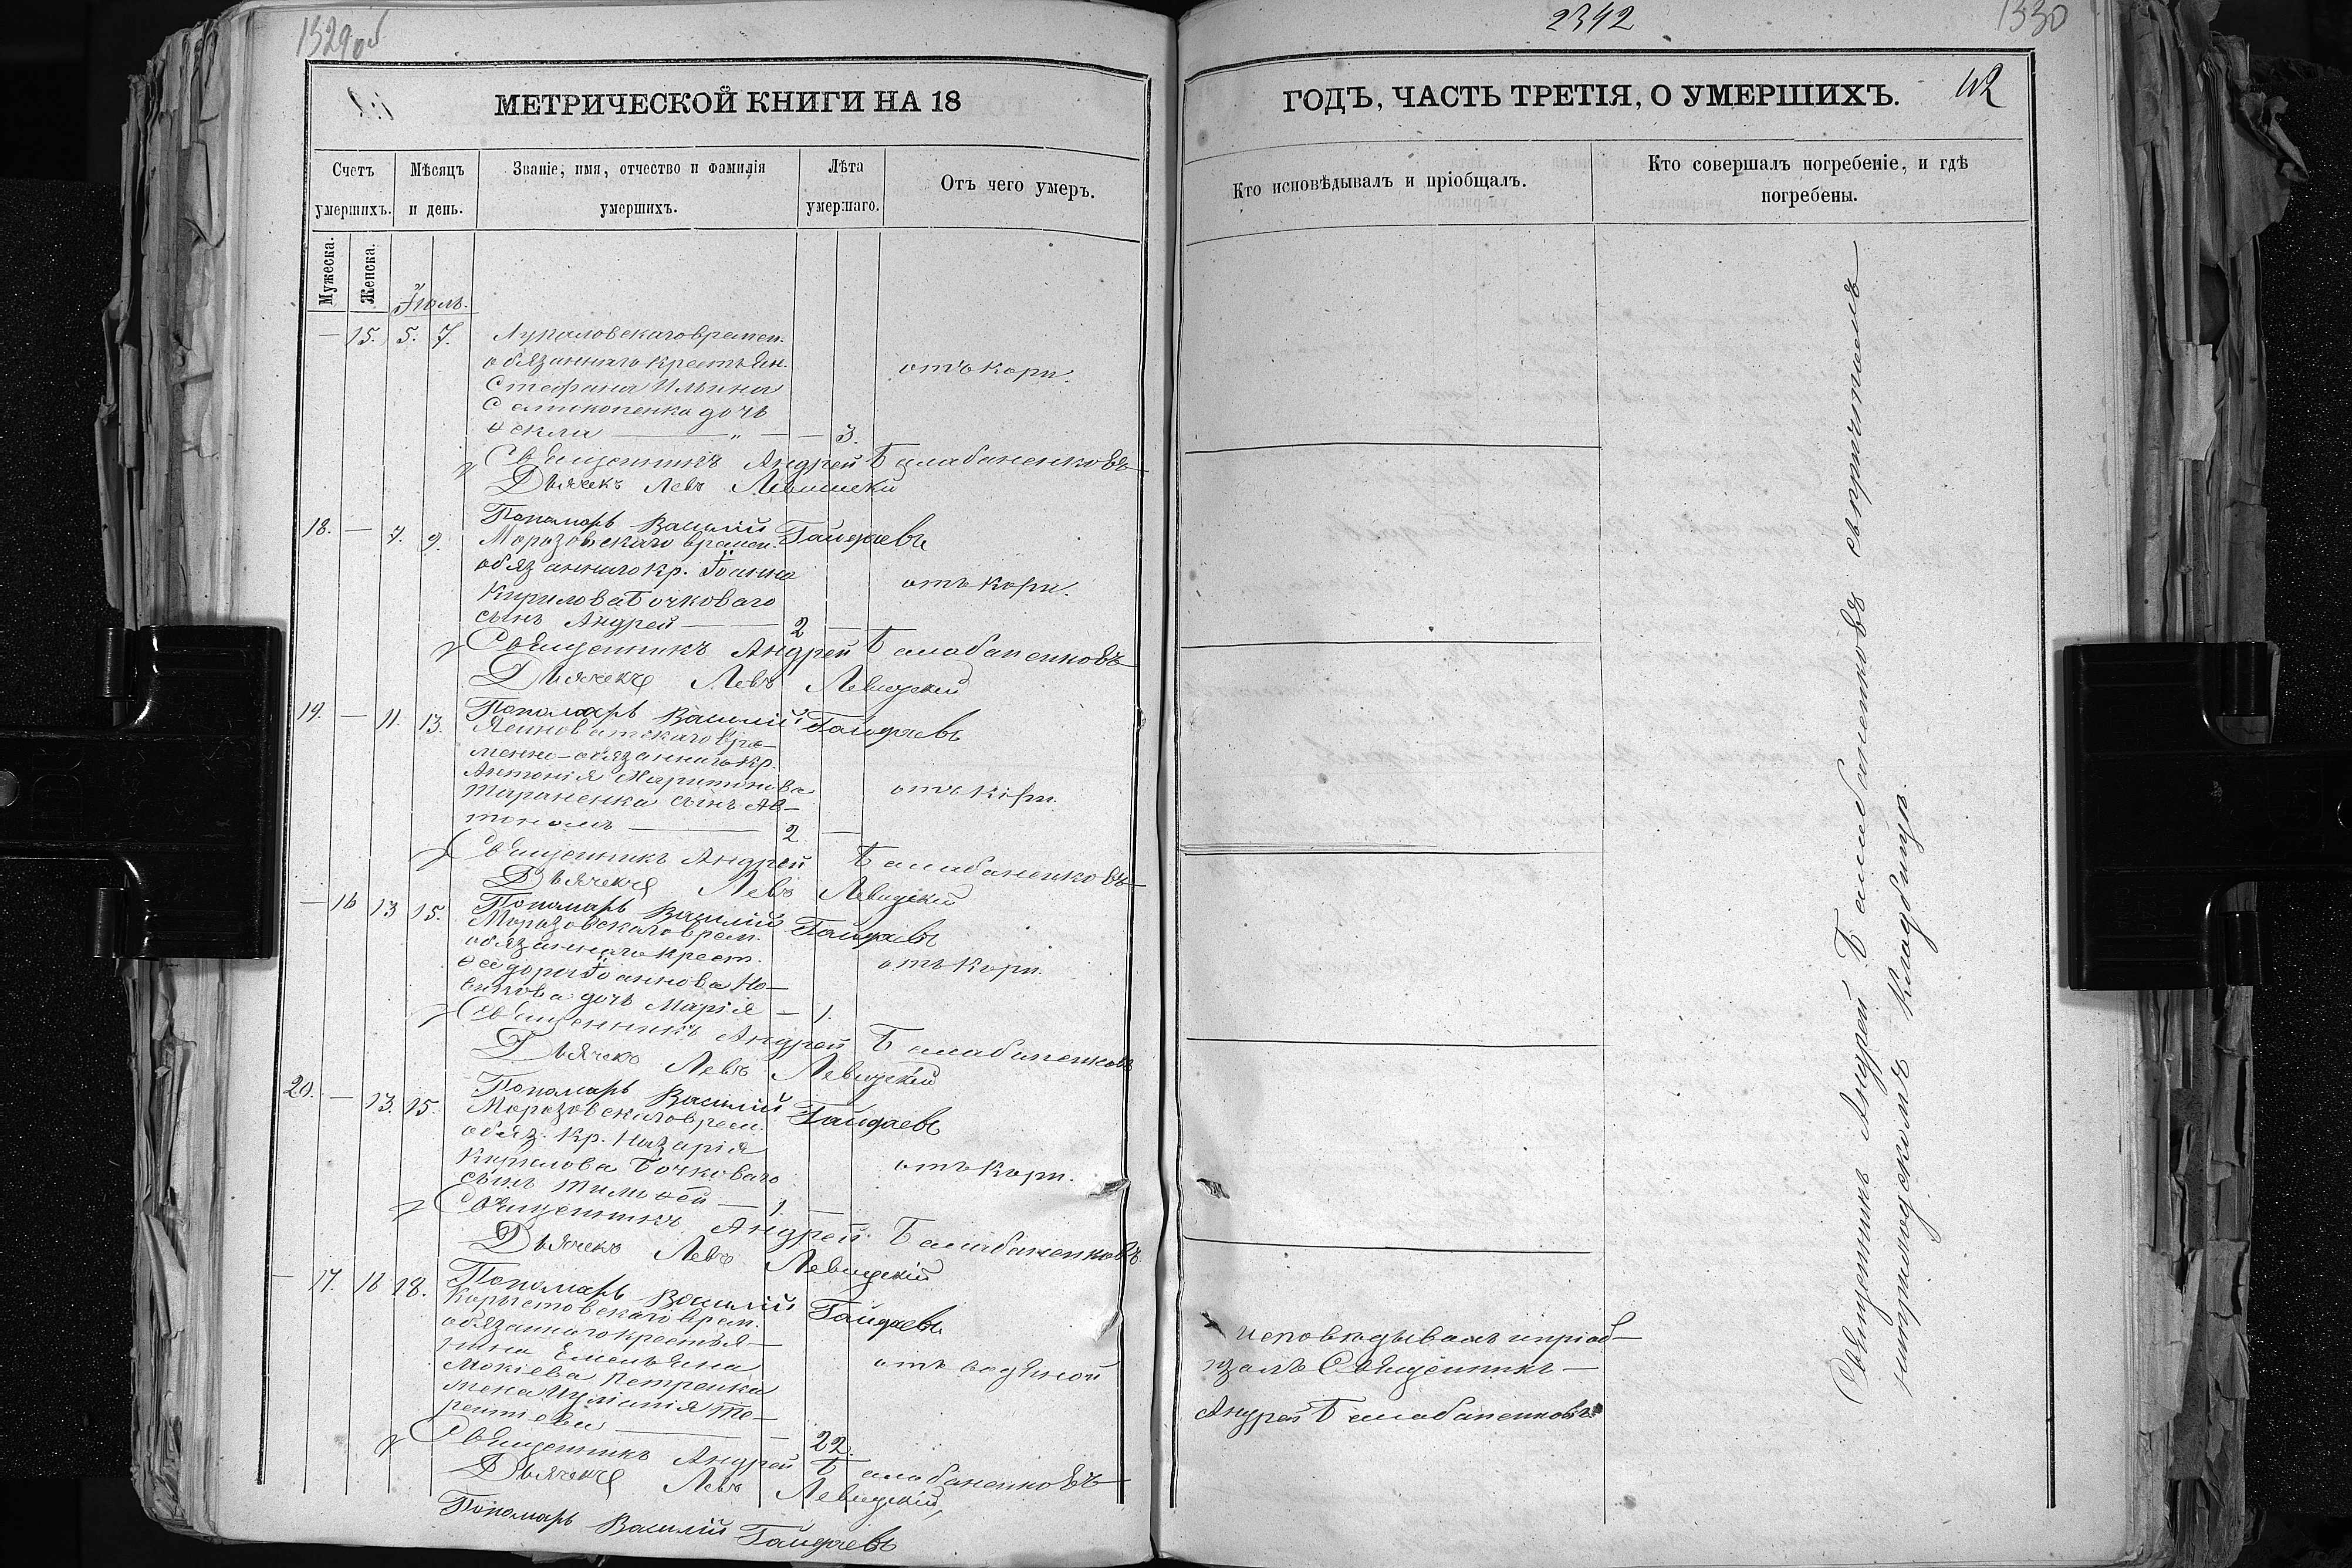 1329об
МЕТРИЧЕСКОЙ КНИГИ НА 18
Счетъ умершихъ.
Мѣсяцъ и день.
Званіе, имя, отчество и фамилія умершихъ.
Лѣта умершаго.
Отъ чего умеръ.
Мужеска.
Женска.
Іюль.
— 15. 5. 7.
Лупаловскаго времен.
обязаннаго крестьян.
Стефана Ильина
дочь
Ѳекла — " — — 3.
отъ кори.
Священникъ Андрей Балабаненковъ
Дьячекъ Левъ Левицкій
Пономарь Василій Гайдаевъ
18. — 7. 9.
Морозовскаго времен.
обязаннаго кр. Іоанна
Кирилова Бочковаго
сынъ Андрей — 2 —
отъ кори.
Священникъ Андрей Балабаненковъ
Дьячекъ Левъ Левицкій
Пономарь Василій Гайдаевъ
19. — 11. 13.
Ясиноватскаго вре-
менно-обязаннаго кр.
Антонія Харитонова
Тараненка сынъ Ав-
тономъ — 2 —
отъ кори.
Священникъ Андрей Балабаненковъ
Дьячекъ Левъ Левицкій
Пономарь Василій Гайдаевъ
— 16 13 15.
Морозовскаго врем.
обязаннаго крест.
Ѳеодора Іоаннова Но-
сикова дочь Марія — 1.
отъ кори.
Священникъ Андрей Балабаненковъ
Дьячекъ Левъ Левицкій
Пономарь Василій Гайдаевъ
20. — 13. 15.
Морозовскаго врем.
обяз. кр. Назарія
Кирилова Бочковаго
сынъ Тимоѳей — 1. —
отъ кори.
Священникъ Андрей Балабаненковъ
Дьячекъ Левъ Левицкій
Пономарь Василій Гайдаевъ
— 17. 16 18.
Корыстовскаго врем.
обязаннаго крестья-
нина Емельяна
Мокіева Петренка
жена Іуліанія Те-
рентіева — — 22.
отъ водяной
Священникъ Андрей Балабаненковъ
Дьячекъ Левъ Левицкій,
Пономарь Василій Гайдаевъ
2342
1330
ГОДЪ, ЧАСТЬ ТРЕТІЯ, О УМЕРШИХЪ.
Кто исповѣдывалъ и пріобщалъ.
Кто совершалъ погребеніе, и гдѣ погребены.
Исповѣдывалъ и пріоб-
щалъ Священникъ
Андрей Балабаненковъ
Священникъ Андрей Балабаненковъ съ причтомъ
на приходскомъ кладбищѣ.